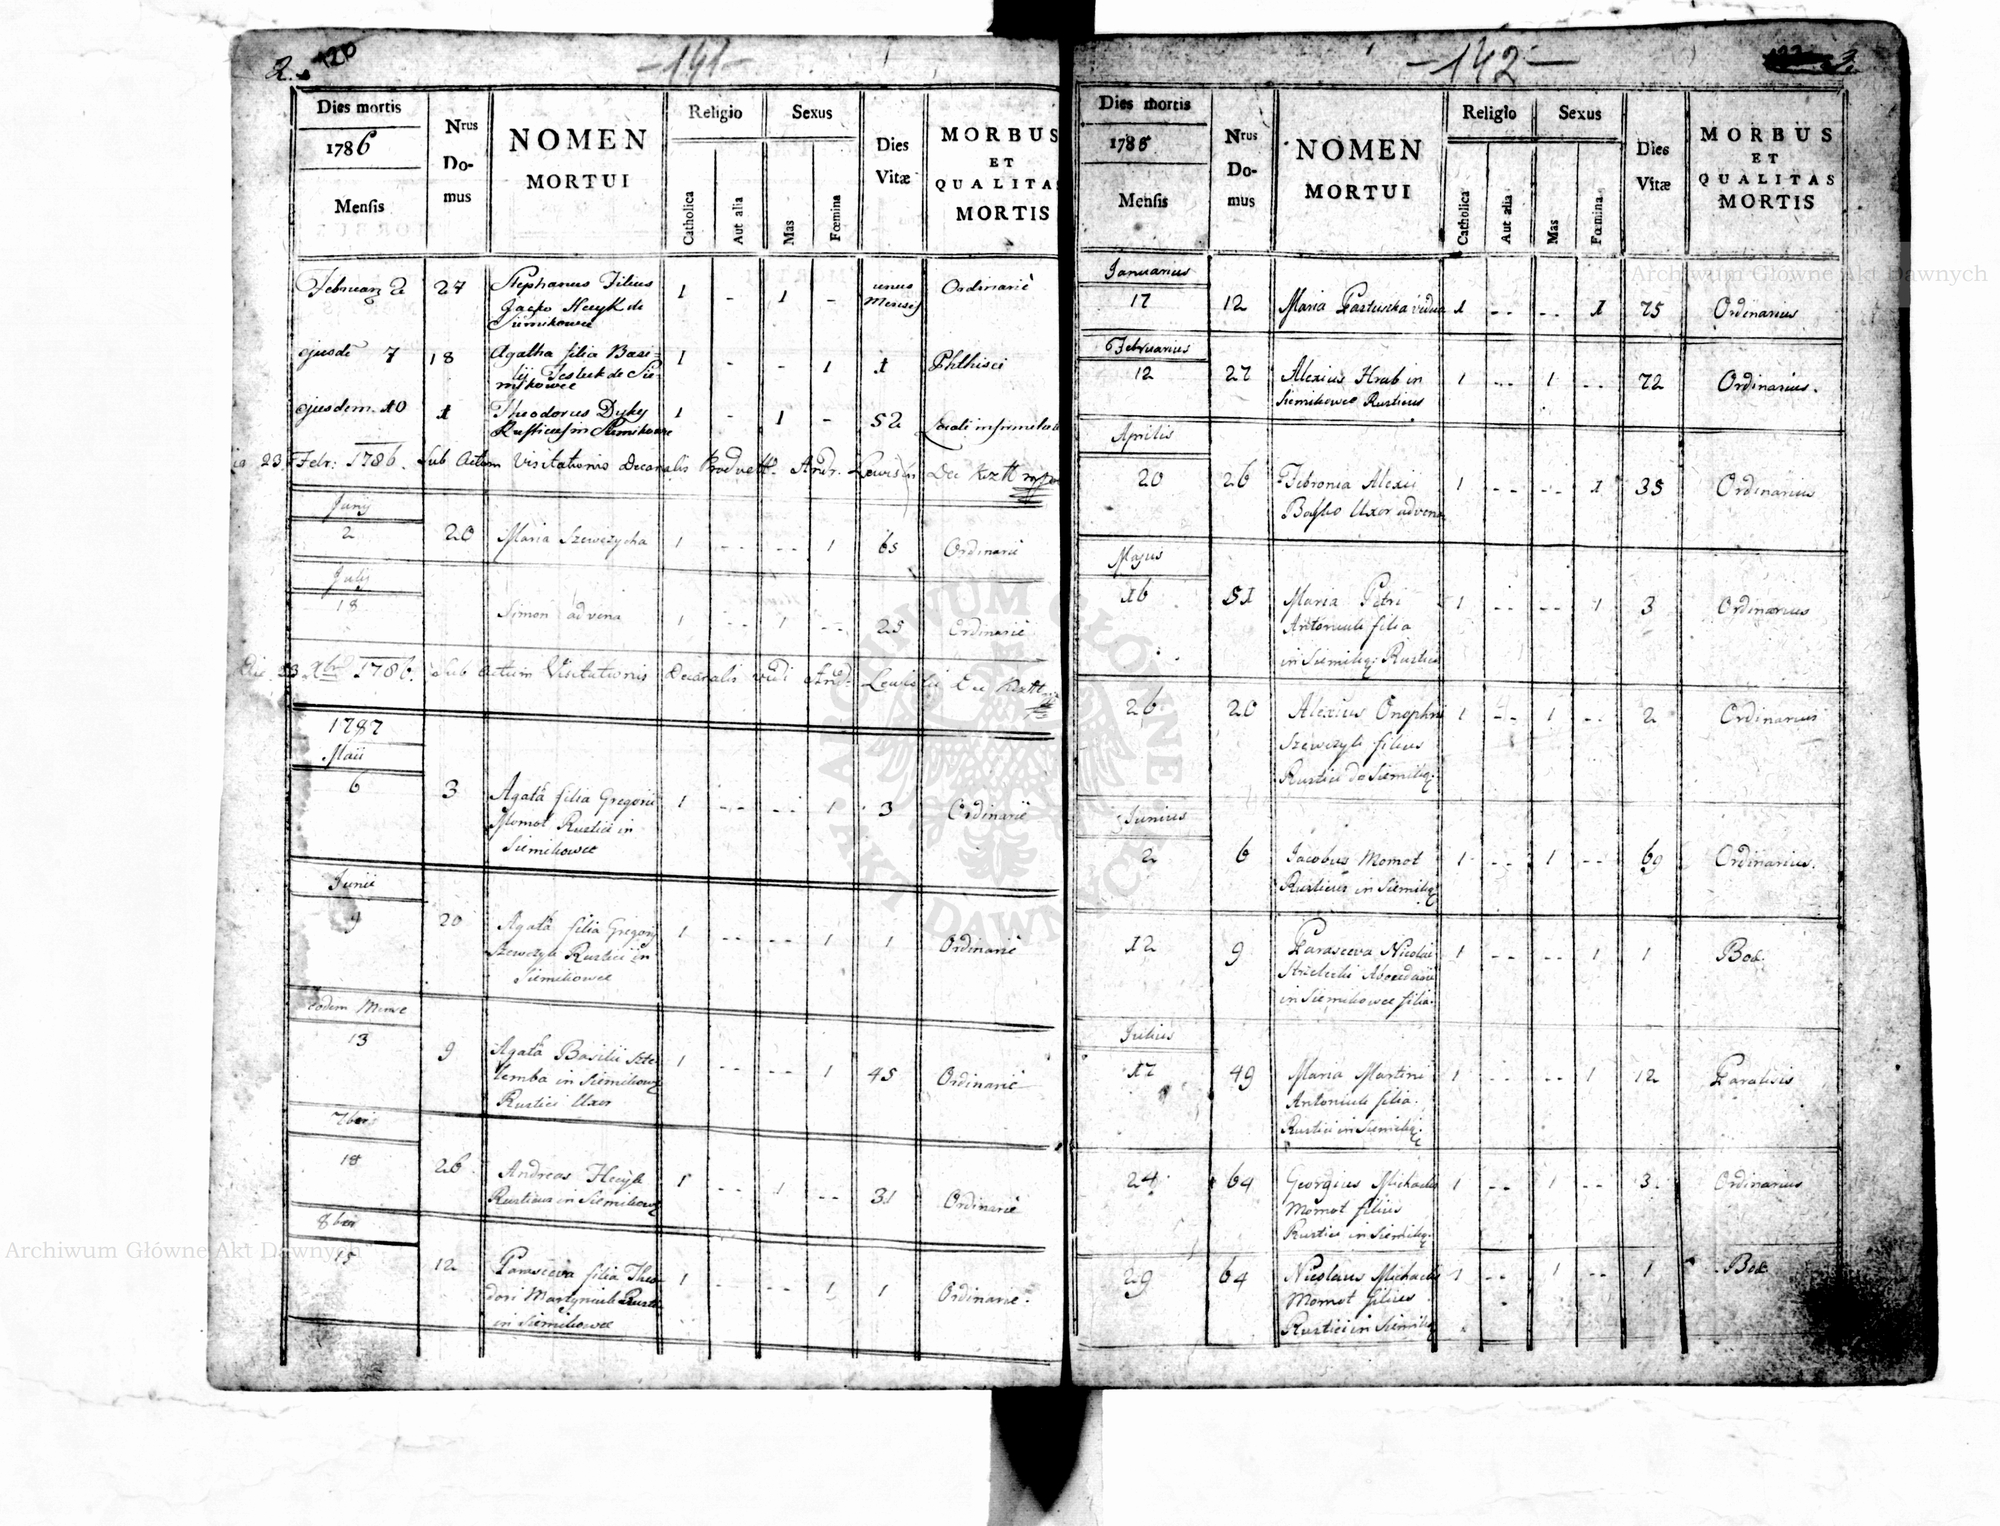 2. 120
-141-
Dies mortis
1786
Mensis
Nrus Do-mus
NOMEN MORTUI
Religio
Catholica
Aut alia
Sexus
Mas
Fœmina
Dies Vitæ
MORBUS ET QUALITAS MORTIS
Februarij 2 27 Stephanus Filius 1 - 1 - unus Ordinarie
Jacko Hecyk de Mensis
Siemikowce
ejusde 7 18 Agatha filia Basi= 1 - - 1 1 Phthisei
lij de Sie
mikowce
ejusdem 10 1 Theodorus Dyky 1 - 1 - 52
Rusticus in Siemikowce
23 Febr: 1786. Sub Actum Visitationis Decanalis Andr. Lewisky Dec
Junij
2 20 Maria Szewczycha 1 -- -- 1 65 Ordinarie
Julij
18 Simon advena 1 -- 1 -- 25 Ordinarie
Die 23 Xbr 1786. Sub Actum Visitationis Decanalis vidi Andr. Lewicki Dec
1787
Maii
6 3 Agata filia Gregorii 1 -- -- 1 3 Ordinarie
Momot Rustici in
Siemikowce
Junii
9 20 Agata filia Gregorij 1 -- -- 1 1 Ordinarie
Szewczyk Rustici in
Siemikowce
Eodem Mense
13 9 Agata Basilii 1 -- -- 1 45 Ordinarie
in Siemikowce
Rustici Uxor
7bris
18 26 Andreas Hecyk 1 -- 1 -- 31 Ordinarie
Rusticus in Siemikowce
8bris
15 12 Parasceva filia Theo 1 -- -- 1 1 Ordinarie.
dori Martyniuk Rustici
in Siemikowce
-142-
3.
Dies mortis
1786
Mensis
Nrus Do-mus
NOMEN MORTUI
Religio
Catholica
Aut alia
Sexus
Mas
Fœmina
Dies Vitæ
MORBUS ET QUALITAS MORTIS
Januarius
17 12 Maria Pastuszka vidua 1 -- -- 1 75 Ordinarius
Februarius
12 27 Alexius Hrab in 1 -- 1 -- 72 Ordinarius.
Siemikowce Rusticus
Aprilis
20 26 Febronia Alexii 1 -- -- 1 35 Ordinarius
Uxor advena
Majus
16 51 Maria Petri 1 -- -- 1 3 Ordinarius
Antoniuk filia
in Siemikq: Rustici
26 20 Alexius Onophrii 1 -- 1 -- 2 Ordinarius
Szewczyk filius
Rustici de Siemikq:
Junius
2 6 Jacobus Momot 1 -- 1 -- 69 Ordinarius.
Rusticus in Siemikq
12 9 Parasceva Nicolai 1 -- -- 1 1 Bok.
in Siemikowce filia.
Julius
17 49 Maria Martini 1 -- -- 1 12 Paralisis
Antoniuk filia.
Rustici in Siemikq:
24 64 Georgius Michaelis 1 -- 1 -- 3. Ordinarius
Momot filius
Rustici in Siemikq.
29 64 Nicolaus Michaelis 1 -- 1 -- 1 Bok
Momot filius
Rustici in Siemikq
Archiwum Główne Akt Dawnych
Archiwum Główne Akt Dawnych
ARCHIWUM GŁÓWNE · AKT DAWNYCH ·